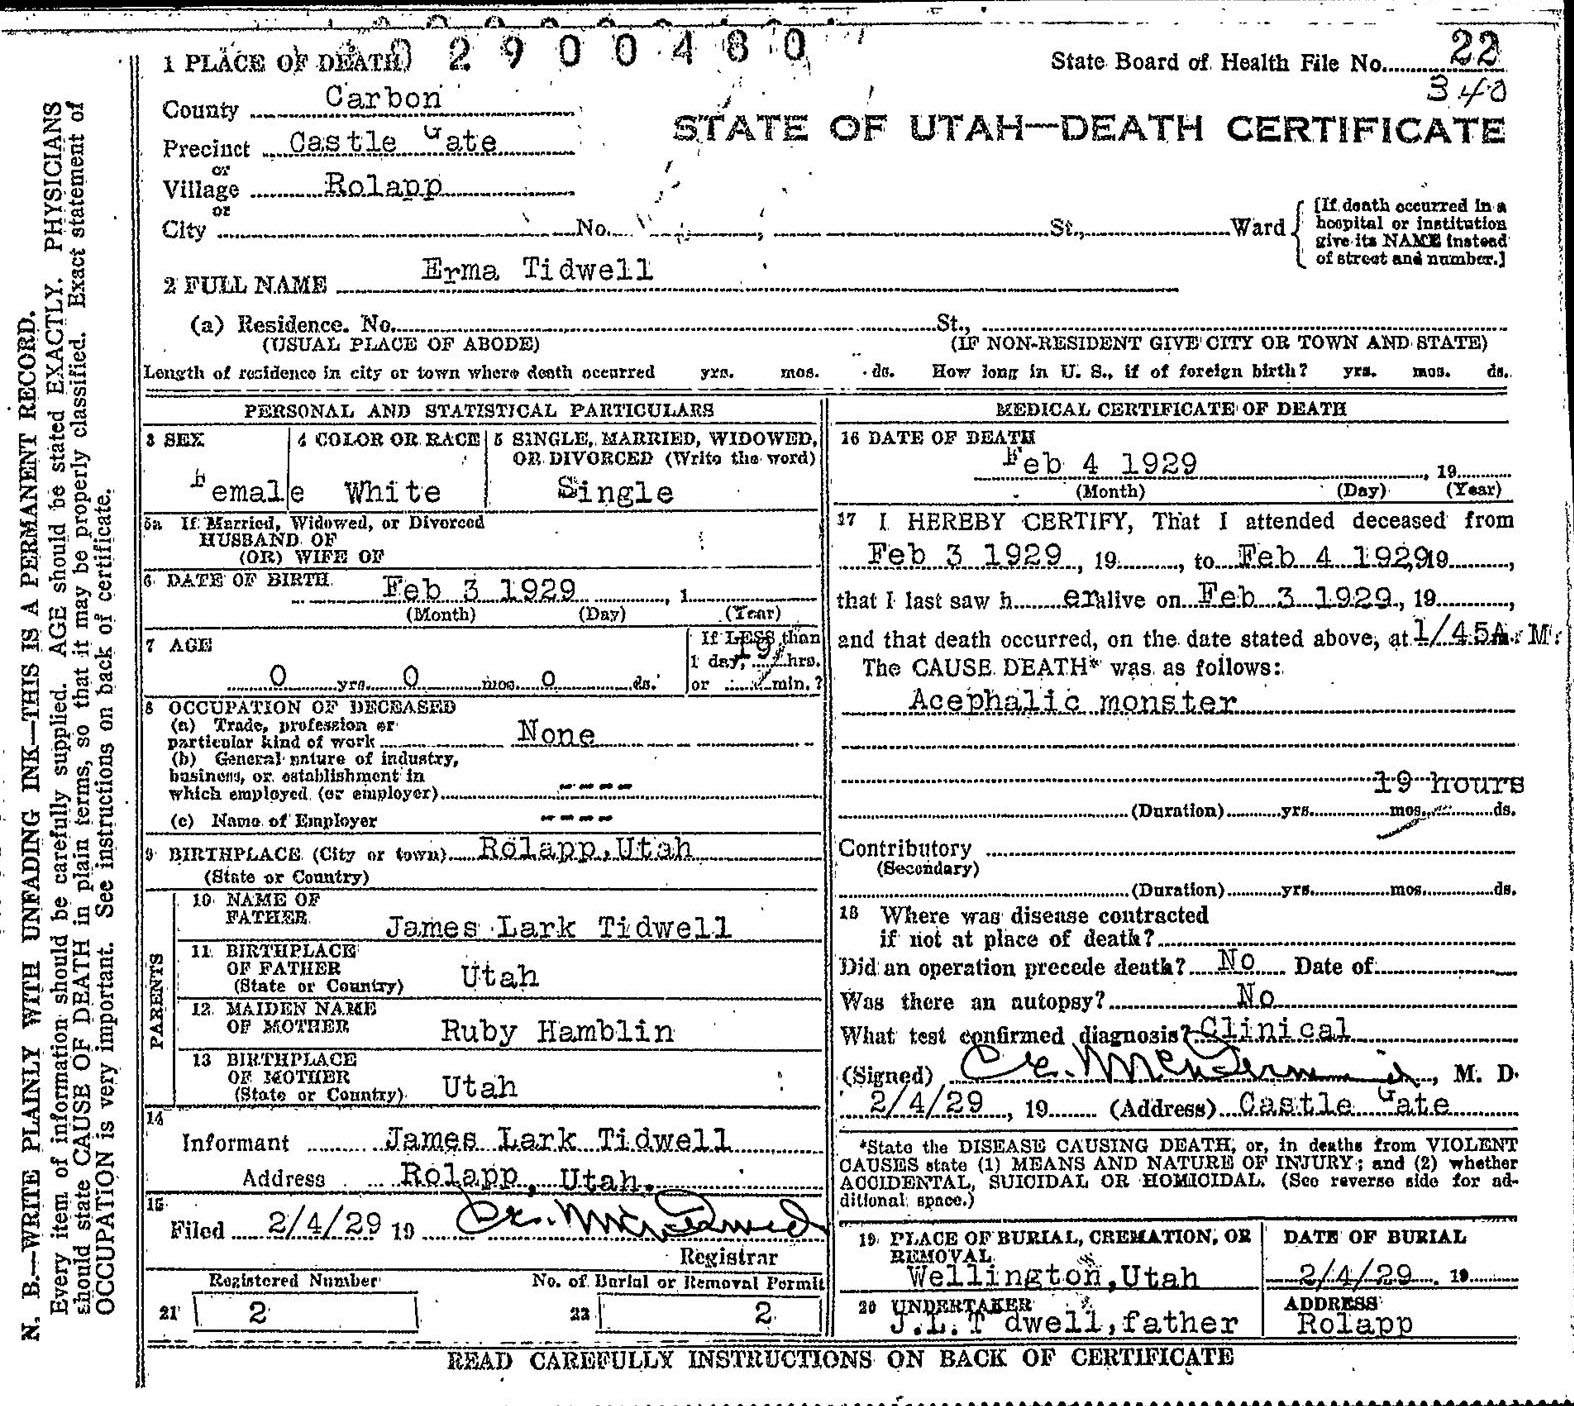 2900480
1 PLACE OF DEATH
State Board of Health File No. 22
340
County Carbon
STATE OF UTAH—DEATH CERTIFICATE
Precinct Castle Gate
or
Village Rolapp
or
City No. St., Ward
[If death occurred in a
hospital or institution
give its NAME instead
of street and number.]
2 FULL NAME Erma Tidwell
(a) Residence. No. St.,
(USUAL PLACE OF ABODE) (IF NON-RESIDENT GIVE CITY OR TOWN AND STATE)
Length of residence in city or town where death occurred yrs. mos. ds. How long in U. S., if of foreign birth? yrs. mos. ds.
PERSONAL AND STATISTICAL PARTICULARS
3 SEX
Female
4 COLOR OR RACE
White
5 SINGLE, MARRIED, WIDOWED,
OR DIVORCED (Write the word)
Single
5a If Married, Widowed, or Divorced
HUSBAND OF
(OR) WIFE OF
6 DATE OF BIRTH Feb 3 1929, 1
(Month) (Day) (Year)
7 AGE
0 yrs. 0 mos. 0 ds.
If LESS than
1 day, 19 hrs.
or min.?
8 OCCUPATION OF DECEASED
(a) Trade, profession or
particular kind of work None
(b) General nature of industry,
business, or establishment in
which employed (or employer) ----
(c) Name of Employer ----
9 BIRTHPLACE (City or town) Rolapp, Utah
(State or Country)
PARENTS
10 NAME OF
FATHER James Lark Tidwell
11 BIRTHPLACE
OF FATHER
(State or Country) Utah
12 MAIDEN NAME
OF MOTHER Ruby Hamblin
13 BIRTHPLACE
OF MOTHER
(State or Country) Utah
14
Informant James Lark Tidwell
Address Rolapp, Utah.
15
Filed 2/4/29 19
Registrar
Registered Number
21 2
No. of Burial or Removal Permit
22 2
MEDICAL CERTIFICATE OF DEATH
16 DATE OF DEATH
Feb 4 1929, 19
(Month) (Day) (Year)
17 I HEREBY CERTIFY, That I attended deceased from
Feb 3 1929, 19, to Feb 4 1929, 19,
that I last saw her alive on Feb 3 1929, 19,
and that death occurred, on the date stated above, at 1/45A. M.
The CAUSE DEATH* was as follows:
Acephalic monster
19 hours
(Duration) yrs. mos. ds.
Contributory
(Secondary)
(Duration) yrs. mos. ds.
18 Where was disease contracted
if not at place of death?
Did an operation precede death? No Date of
Was there an autopsy? No
What test confirmed diagnosis? Clinical
(Signed) , M. D.
2/4/29, 19 (Address) Castle Gate
*State the DISEASE CAUSING DEATH, or, in deaths from VIOLENT
CAUSES state (1) MEANS AND NATURE OF INJURY; and (2) whether
ACCIDENTAL, SUICIDAL OR HOMICIDAL. (See reverse side for ad-
ditional space.)
19 PLACE OF BURIAL, CREMATION, OR
REMOVAL
Wellington, Utah
DATE OF BURIAL
2/4/29. 19
20 UNDERTAKER
J.L.T dwell, father
ADDRESS
Rolapp
READ CAREFULLY INSTRUCTIONS ON BACK OF CERTIFICATE
N. B.—WRITE PLAINLY WITH UNFADING INK—THIS IS A PERMANENT RECORD.
Every item of information should be carefully supplied. AGE should be stated EXACTLY. PHYSICIANS
should state CAUSE OF DEATH in plain terms, so that it may be properly classified. Exact statement of
OCCUPATION is very important. See instructions on back of certificate.